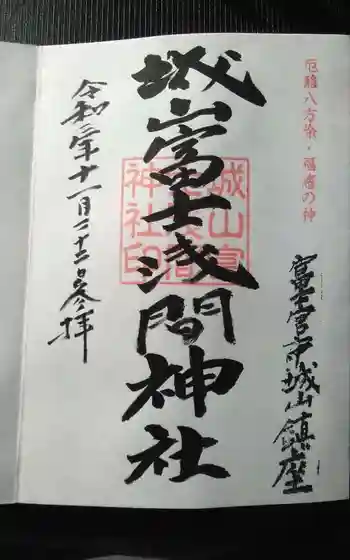 厄難八方除・福の神
富士宮市城山鎮座
城山富士浅間神社
城山富
士浅間
神社印
令和三年十一月二十二日参拝